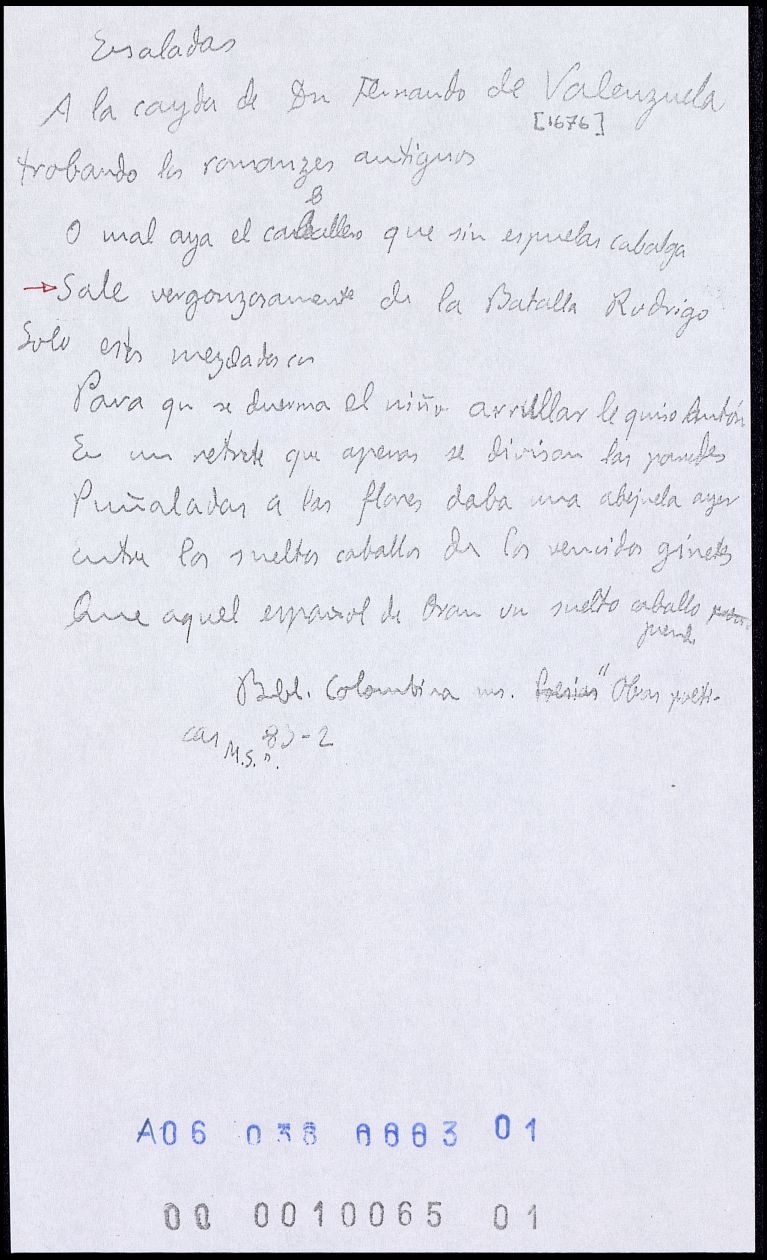 Ensaladas
A la cayda de Dn Fernando de Valenzuela
[1676]
trobando los romanzes antiguos
O mal aya el caballero que sin espuelas cabalga
→ Sale vergonzosamente de la Batalla Rodrigo
Solo estos mezclados con
Para qu se duerma el niño arrullar le quiso Antón
En un retrete que apenas se divisan las paredes
Puñaladas a las flores daba una abejuela ayer
entre los sueltos caballos de los vencidos ginetes
Que aquel español de Oran un suelto caballo
prende
Bibl. Colombina ms. Poesias "Obras poeti-
cas M.S. 83-2
A06 038 0003 01
00 0010065 01